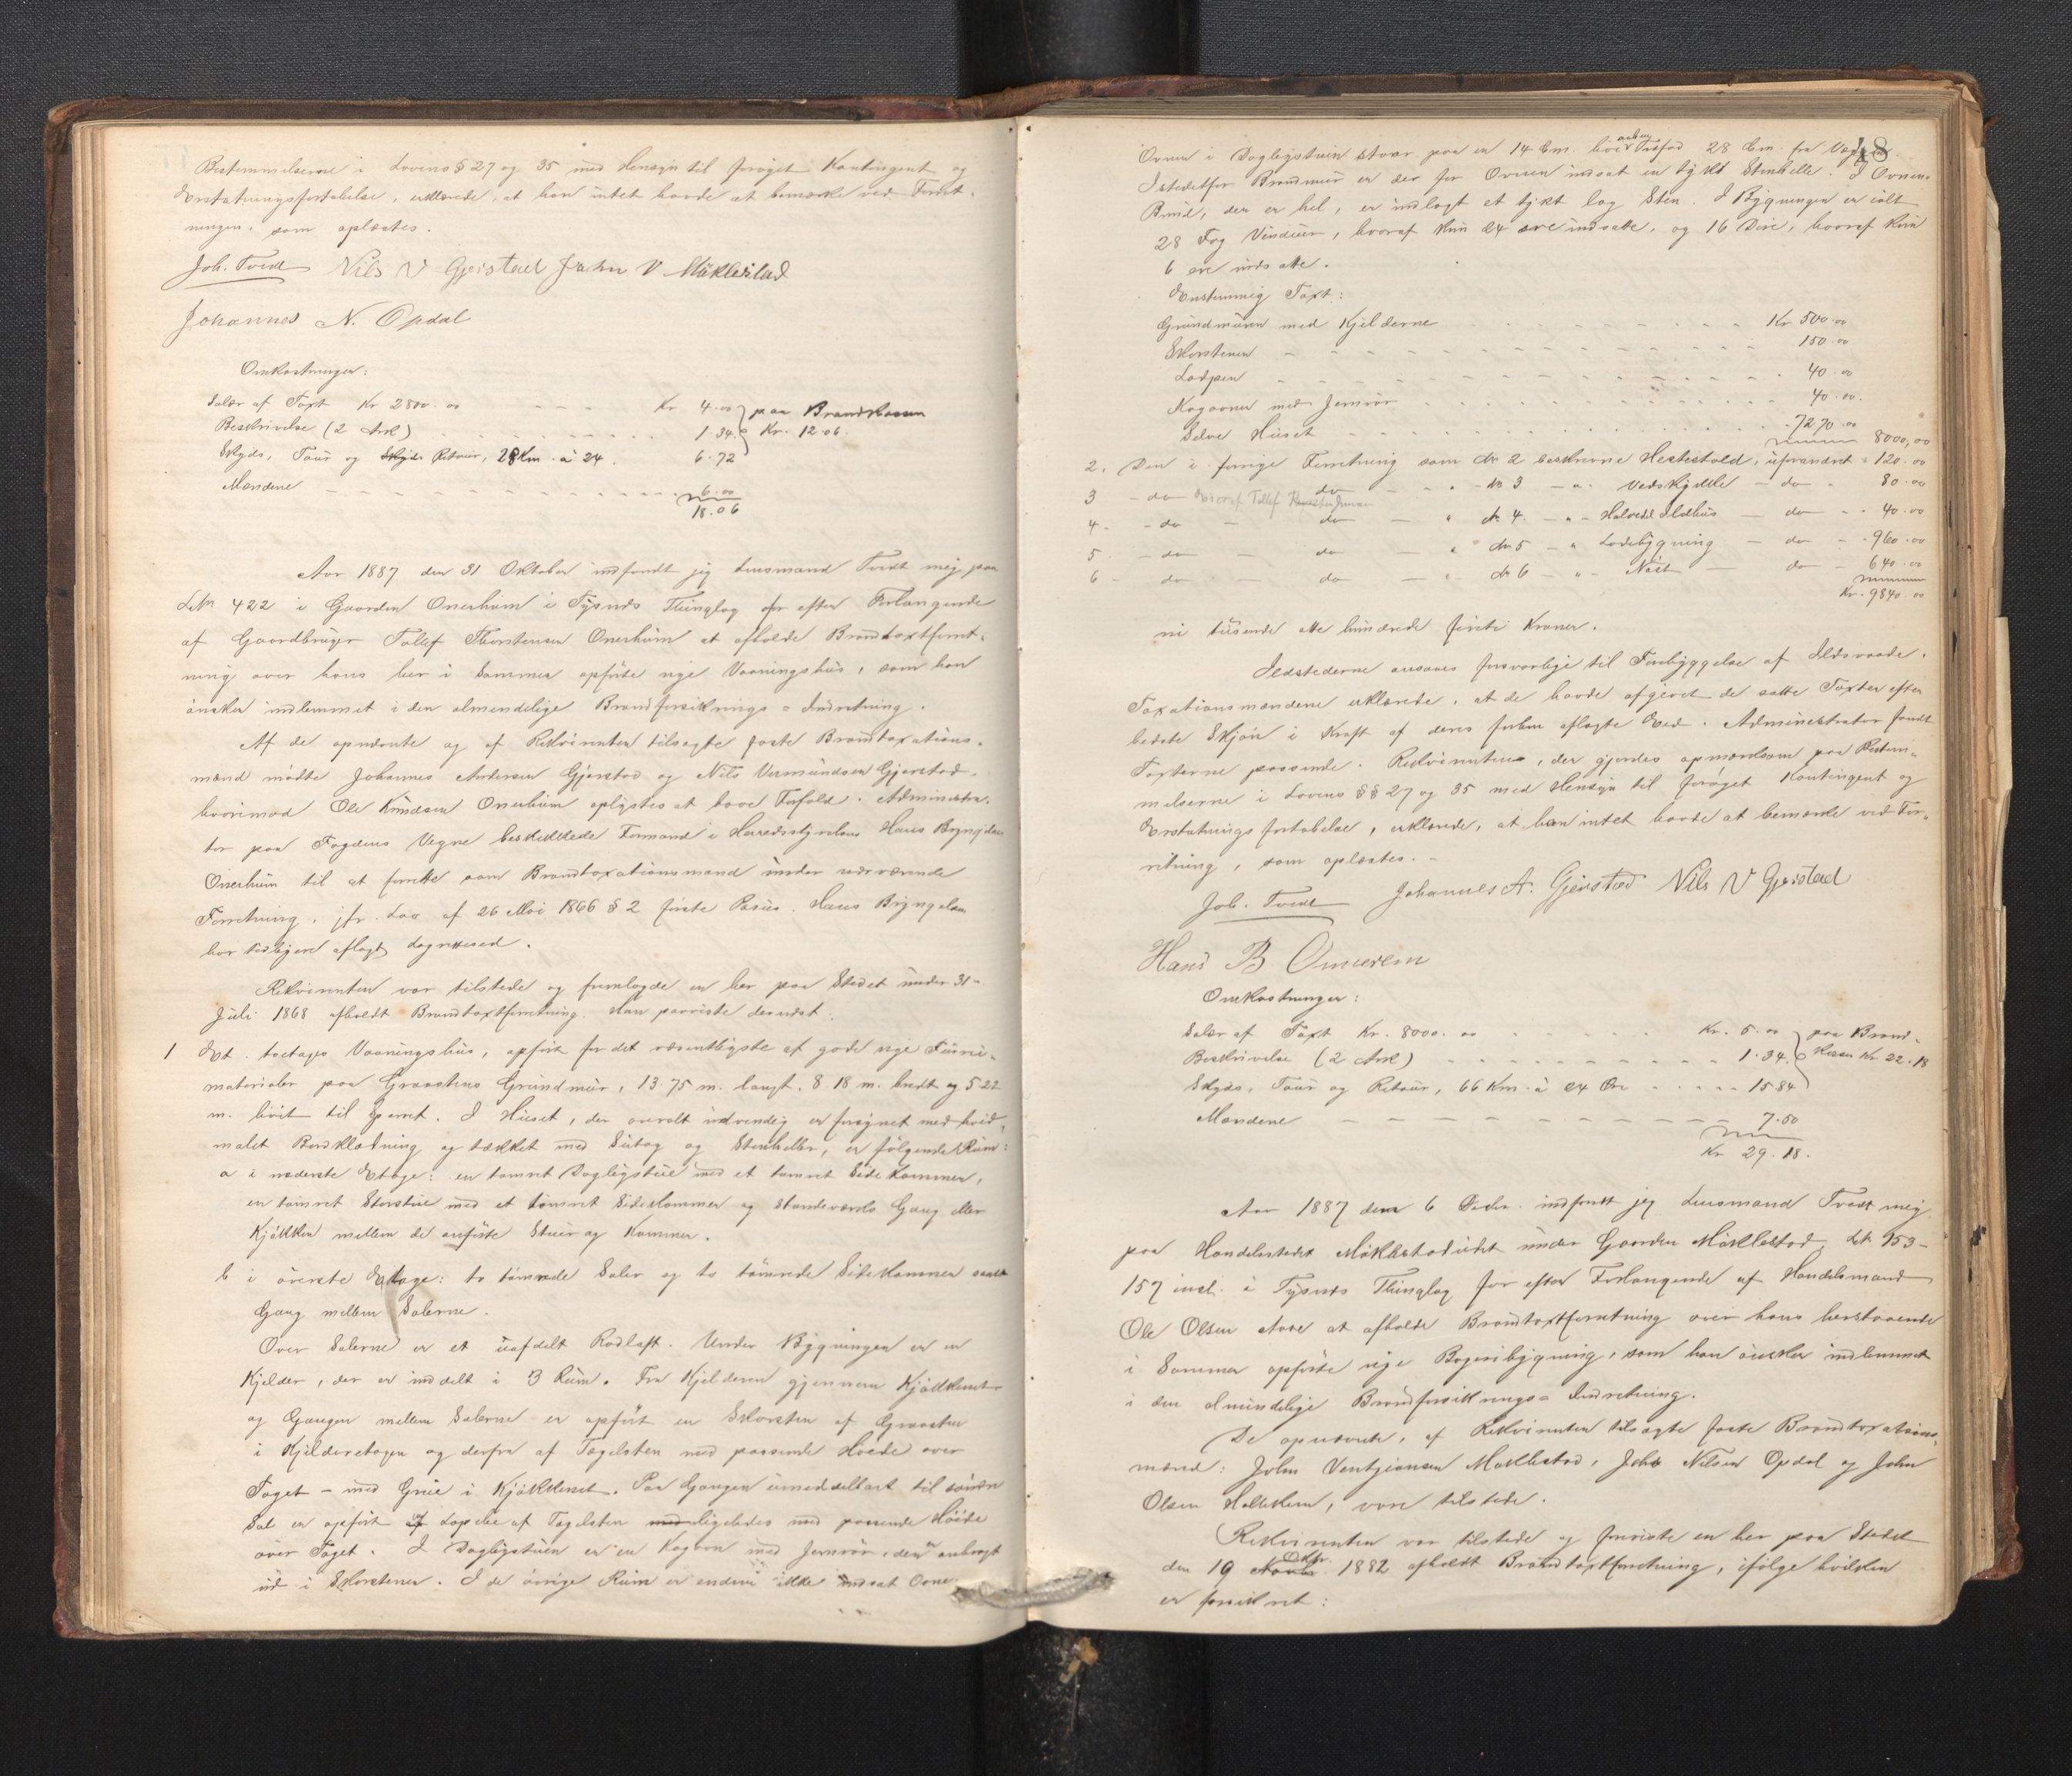 Bestemmelserne i Lovens § 27 og 35 med Hensyn til forøget Kontingent og
Erstatningsfortabelse, erklærede, at han intet havde at bemærke ved Forret-
ningen, som oplæstes.
Joh. Tvedt Nils V Gjerstad John V Mäklestad
Johannes N. Opdal
Omkostninger:
Salær af Taxt Kr 2800.00 - - - Kr 4.00 } paa Brandkassen
Beskrivelse (2 Ark) . . . . . . . . 1.34 } Kr. 12.06.
Skyds, Tour og Retour, 28 Km. à 24. 6.72
Mændene - - - - - - - - - 6.00
18.06
Aar 1887 den 31 Oktober indfandt jeg Lensmand Tvedt mig paa
L.No 422 i Gaarden Onerheim i Tysnes Thinglag for efter Forlangende
af Gaardbruger Tollef Thorstensen Onerheim at afholde Brandtaxtforret-
ning over hans her i Sommer opførte nye Vaaningshus, som han
ønsker indlemmet i den almindelige Brandforsikrings-Indretning.
Af de opnævnte og af Rekvirenten tilsagte faste Brandtaxations-
mænd mødte Johannes Andersen Gjerstad og Nils Vermundsen Gjerstad,
hvorimod Ole Knudsen Onerheim oplystes at have Forfald. Administra-
tor paa Fogdens Vegne beskikkede Formand i Herredsstyrelsen Hans Bryngelsen
Onerheim til at forrette som Brandtaxationsmand under nærværende
Forretning, jfr. Lov af 26 Mai 1866 § 2 første Passus. Hans Bryngelsen
har tidligere aflagt Lagrettesed.
Rekvirenten var tilstede og fremlagde en her paa Stedet under 31-
Juli 1868 afholdt Brandtaxtforretning. Han paaviste dernæst:
1 Et toetages Vaaningshus, opført for det væsentligste af gode nye Furu-
materialer paa Graastens Grundmur, 13.75 m. langt, 8.18 m. bredt og 5.22
m. høit til Sperret. I Huset, der overalt indvendig er forsynet med hvid-
malet Bordklædning og tækket med Sutag og Stenheller, er følgende Rum:
a i nederste Etage: en tømret Dagligstue med et tømret Sidekammer,
en tømret Storstue med et tømret Sidekammer og Standeværks Gang eller
Kjøkken mellem de anførte Stuer og Kammer.
b i øverste Etage: to tømrede Saler og to tømrede Sidekammer samt
Gang mellem Salerne.
Over Salerne er et uafdelt Rodloft. Under Bygningen er en
Kjelder, der er inddelt i 3 Rum. Fra Kjelderen gjennem Kjøkkenet
og Gangen mellem Salerne er opført en Skorsten af Graasten
i Kjelderetagen og derfra af Tegelsten med passende Høide over
Taget - med Grue i Kjøkkenet. Paa Gangen umiddelbart til søndre
Sal er opført af Tegelsten ligeledes med passende Høide
over Taget. I Dagligstuen er en Kogovn med Jernrør, der anbragt
ud i Skorstenen. I de øvrige Rum er endnu ikke indsat Ovne.
48
Ovnen i Dagligstuen staar paa en 14 Cm. høi Træfod 28 Cm. fra Væggen.
Istedetfor Brandmur er der for Ovnen indsat en tykt Stenhelle. I Ovnens
Bund, der er hel, er indlagt et tykt lag Sten. I Bygningen er ialt
28 Fag Vinduer, hvoraf kun 24 ere indsatte, og 16 Døre, hvoraf kun
6 ere indsatte.
Enstemmig Taxt:
Grundmuren med Kjelderne . . . . . Kr 500.00
Skorstenen - - - - - - - 150.00
- - - - - - - 40.00
Kogovnen med Jernrør . . . . . . 40.00.
Selve Huset - - - - - - - 7270.00
8000,00
2. Den i forrige Forretning som No 2 beskrevne Hestestald, uforandret - 120.00
3 - do do - " - No 3 - " - Vedskykke - do - 80.00
4 - - do - do - " No 4 - " - Ildhus - do - - 40.00
5 - do - do - " No 5 - " Ladebygning - do - - 960.00
6 - do - do - " - No 6 - " - Nøst - do - 640.00
Kr. 9840.00
ni tusende otte hundrede firti Kroner.
Ildstederne ansaaes forsvarlige til Forebyggelse af Ildsvaade.
Taxationsmændene erklærede, at de havde afgivet de satte Taxter efter
bedste Skjøn i Kraft af deres forhen aflagte Ed. Administrator fandt
Taxterne passende. Rekvirenten, der gjordes opmærksom paa Bestem-
melserne i Lovens §§ 27 og 35 med Hensyn til forøget Kontingent og
Erstatnings fortabelse, erklærede, at han intet havde at bemærke ved For-
retning, som oplæstes. -
Joh. Tvedt Johannes A. Gjerstad Nils V Gjerstad
Hans B Onnereim
Omkostninger:
Salær af Taxt Kr. 8000.00 - - - - Kr. 5.00 } paa Brand-
Beskrivelse (2 Ark) - - - - - - 1.34. } kassen Kr 22.18
Skyds, Tour og Retour, 66 Km. à 24 Øre - - - - 15.84
Mændene - - - - - - - - 7.00
Kr 29.18.
Aar 1887 den 6 Decbr. indfandt jeg Lensmand Tvedt mig
paa Handelsstedet under Gaarden Mäklestad, L.No 153-
157 incl. i Tysnes Thinglag for efter Forlangende af Handelsmand
Ole Olsen at afholde Brandtaxtforretning over hans herstaaende
i Sommer opførte nye Bageribygning, som han ønsker indlemmet
i den almindelige Brandforsikrings-Indretning.
De opnævnte, af Rekvirenten tilsagte faste Brandtaxations-
mænd: John Mäklestad, Johs Nilsen Opdal og John
Olsen, vare tilstede.
Rekvirenten var tilstede og foreviste en her paa Stedet
den 19 Oktbr. 1882 afholdt Brandtaxtforretning, ifølge hvilken
er forsikret: